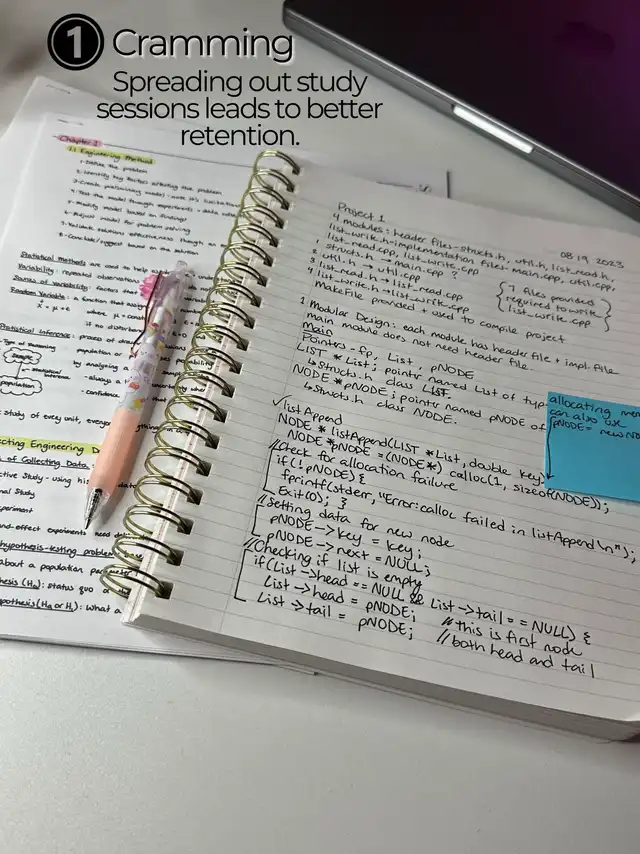 1 Cramming
Spreading out study
sessions leads to better
retention.
Chapter 1
1.1 Engineering Method
1-Define the problem
2-Identify key factors affecting the problem
3-Create preliminary model - note it's
4-Test the model through experiments + data
5-Modify model based on findings
6-Adjust model for problem solving
7-Validate solutions effectiveness though an
8-Conclude/suggest based on
Statistical methods are used to help
Variability: repeated
Sources of Variability: factors that
Random Variable: a function that
where
if no
Statistical inference: process of
population or
by analyzing a
always a
confidence
Type of Reasoning
Sample
statistical inference
population
: study of every unit, everyone
ecting Engineering D
of Collecting Data:
ctive Study - using his
onal Study
xperiment
and-effect experiments need
hypothesis-testing problem
about a population
hesis (H0): status quo
pothesis (Ha or H1): what a
Project 1
08 19 2023
4 modules: header files - structs.h, util.h, list_read.h,
list_write.h - implementation files - main.cpp, util.cpp,
list_read.cpp, list_write.cpp
1 structs.h → main.cpp ?
2 util.h → util.cpp
3 list_read.h → list_read.cpp
4 list_write.h → list_write.cpp
{ 7 files provided }
required to write
list_write.cpp
MakeFile provided + used to compile project
1 Modular Design: each module has header file + impl. file
main module does not need header file.
Main
Pointers - fp, List, pNODE
LIST *List; pointer named List of typ
↳ structs.h class LIST.
NODE *pNODE; pointer named pNODE of
↳ structs.h class NODE.
allocating mem
can also use
pNODE = new NO
✓ listAppend
NODE *listAppend(LIST *List, double key)
NODE *pNODE = (NODE*) calloc(1, sizeof(NODE));
//Check for allocation failure
if (!pNODE) {
fprintf(stderr, "Error: calloc failed in listAppend\n");
Exit(0); }
//Setting data for new node
pNODE->key = key;
pNODE->next = NULL;
//Checking if list is empty
if(List->head == NULL && List->tail == NULL) {
List->head = pNODE; // this is first node
List->tail = pNODE; // both head and tail